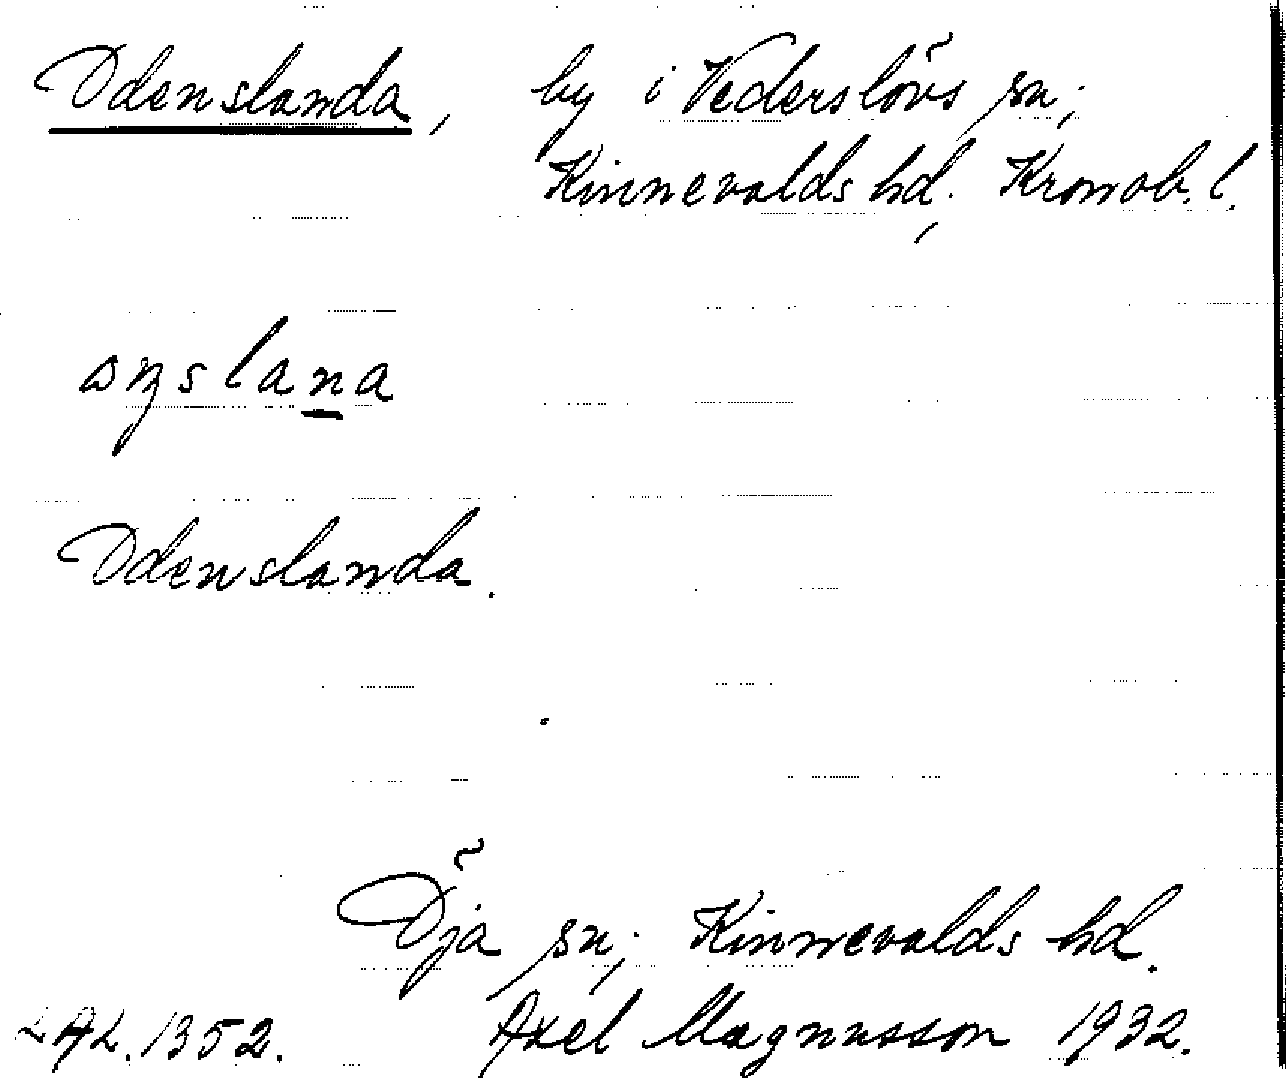 Odenslanda, by i Vederslövs sn;
Kinnevalds hd, Kronob. l.
Odenslanda.
Öja sn; Kinnevalds hd.
LAL. 1352. Axel Magnusson 1932.